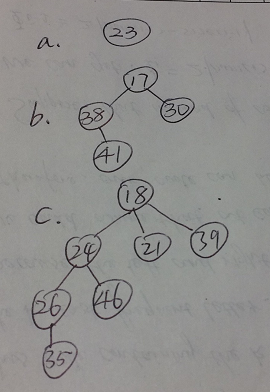 a. 23
17
b. 38 30
41
18
c.
24 21 39
26 46
35